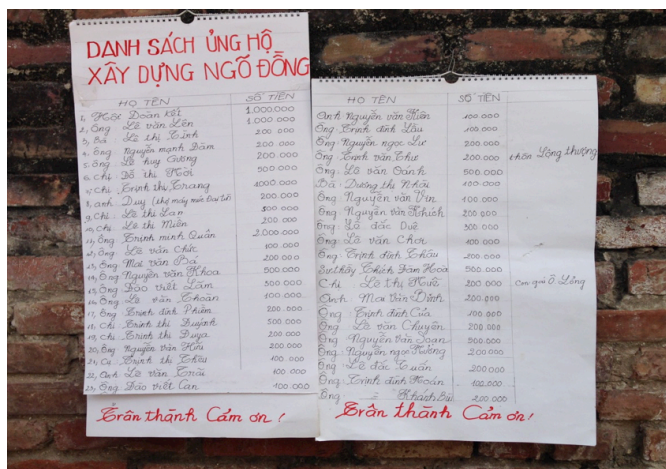 DANH SÁCH ỦNG HỘ
XÂY DỰNG NGÕ ĐỒNG
HỌ TÊN SỐ TIỀN
1, Hội Đoàn Kết 1.000.000
2, Ông Lê văn Lên 1.000.000
3, Bà Lê thị Tình 200.000
4, Ông Nguyễn mạnh Đăm 200.000
5, Ông Lê huy Cường 200.000
6, Chị Đỗ thị Hời 500.000
7, Chị Trịnh thị Trang 1000.000
8, anh Duy (thợ máy 200.000
9, Chị Lê thị Lan 500.000
10, Chị Lê thị Miền 200.000
11, Ông Trịnh minh Quân 2.000.000
12, Ông Lê văn Chức 100.000
13, Ông Mai văn Bá 200.000
14, Ông Nguyễn văn Khoa 500.000
15, Ông Đào viết Lâm 500.000
16, Ông Lê văn Thoan 100.000
17, Ông Trịnh đình Phiềm 200.000
18, Chị Trịnh thị Quỳnh 500.000
19, Chị Trịnh thị Duya 200.000
20, Ông Nguyễn văn Hữu 200.000
21, Cụ Trịnh thị Thêu 100.000
22, Anh Lê văn Trãi 100.000
23, Ông Đào viết Can 100.000
Trân thành Cảm ơn!
HỌ TÊN SỐ TIỀN
Anh Nguyễn văn Kiên 100.000
Ông Trịnh đình Lâu 100.000
Ông Nguyễn ngọc Lư 200.000
Ông Trịnh văn Thư 200.000 thôn Lông thượng
Ông Lê văn Oánh 500.000
Bà Dương thị Nhài 100.000
Ông Nguyễn văn Vin 100.000
Ông Nguyễn văn Khích 200.000
Ông Lê đắc Duệ 300.000
Ông Lê văn Chơi 100.000
Ông Trịnh đình Thấu 200.000
Sư thầy Thích Đàm Hoà 500.000
Chị Lê thị 200.000 Con gái Ô. Lông
Anh Mai văn Định 200.000
Ông Trịnh đình Của 100.000
Ông Lê văn Chuyên 200.000
Ông Nguyễn văn Loan 500.000
Ông Nguyễn ngọc Hưởng 200.000
Ông Lê đắc Xuân 200.000
Ông Trịnh đình Hoán 100.000
Ông = Khánh Bùi 200.000
Trân thành Cảm ơn!